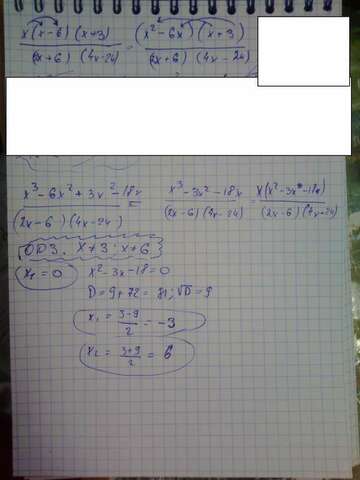 x(x-6)(x+3)/(2x+6)(4x-24) = (x²-6x)(x+3)/(2x+6)(4x-24)
x³-6x²+3x²-18x/(2x-6)(4x-24) = x³-3x²-18x/(2x-6)(4x-24) = x(x²-3x-18)/(2x-6)(4x-24)
ОДЗ. x≠3; x≠6
x₁=0 x²-3x-18=0
D=9+72=81; √D=9
x₁=3-9/2=-3
x₂=3+9/2=6